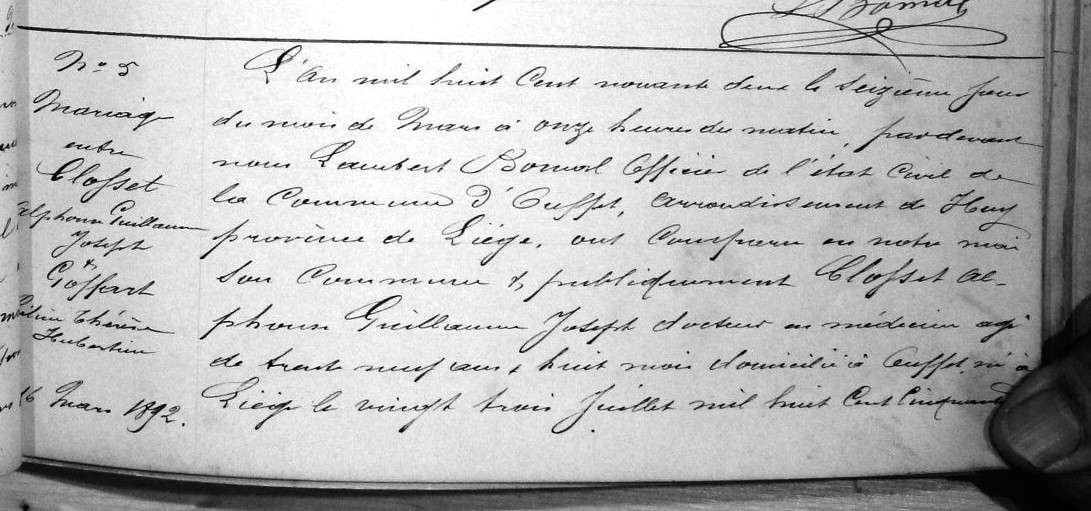 N° 5
Mariage
entre
Closset
Alphonse Guillaume
Joseph
&
Goffart
Thérèse
Hubertine
16 Mars 1892.
L'An mil huit Cent nonante deux le Seizième jour
du mois de Mars à onze heures du matin, pardevant
nous Lambert Bomal Officier de l'état Civil de
la Commune d'Ouffet, arrondissement de Huy
province de Liége, ont comparu en notre mai
son Commune & publiquement Closset Al-
phonse Guillaume Joseph docteur en médecine agé
de trente neuf ans & huit mois domicilié à Ouffet né à
Liége le vingt trois Juillet mil huit Cent Cinquante